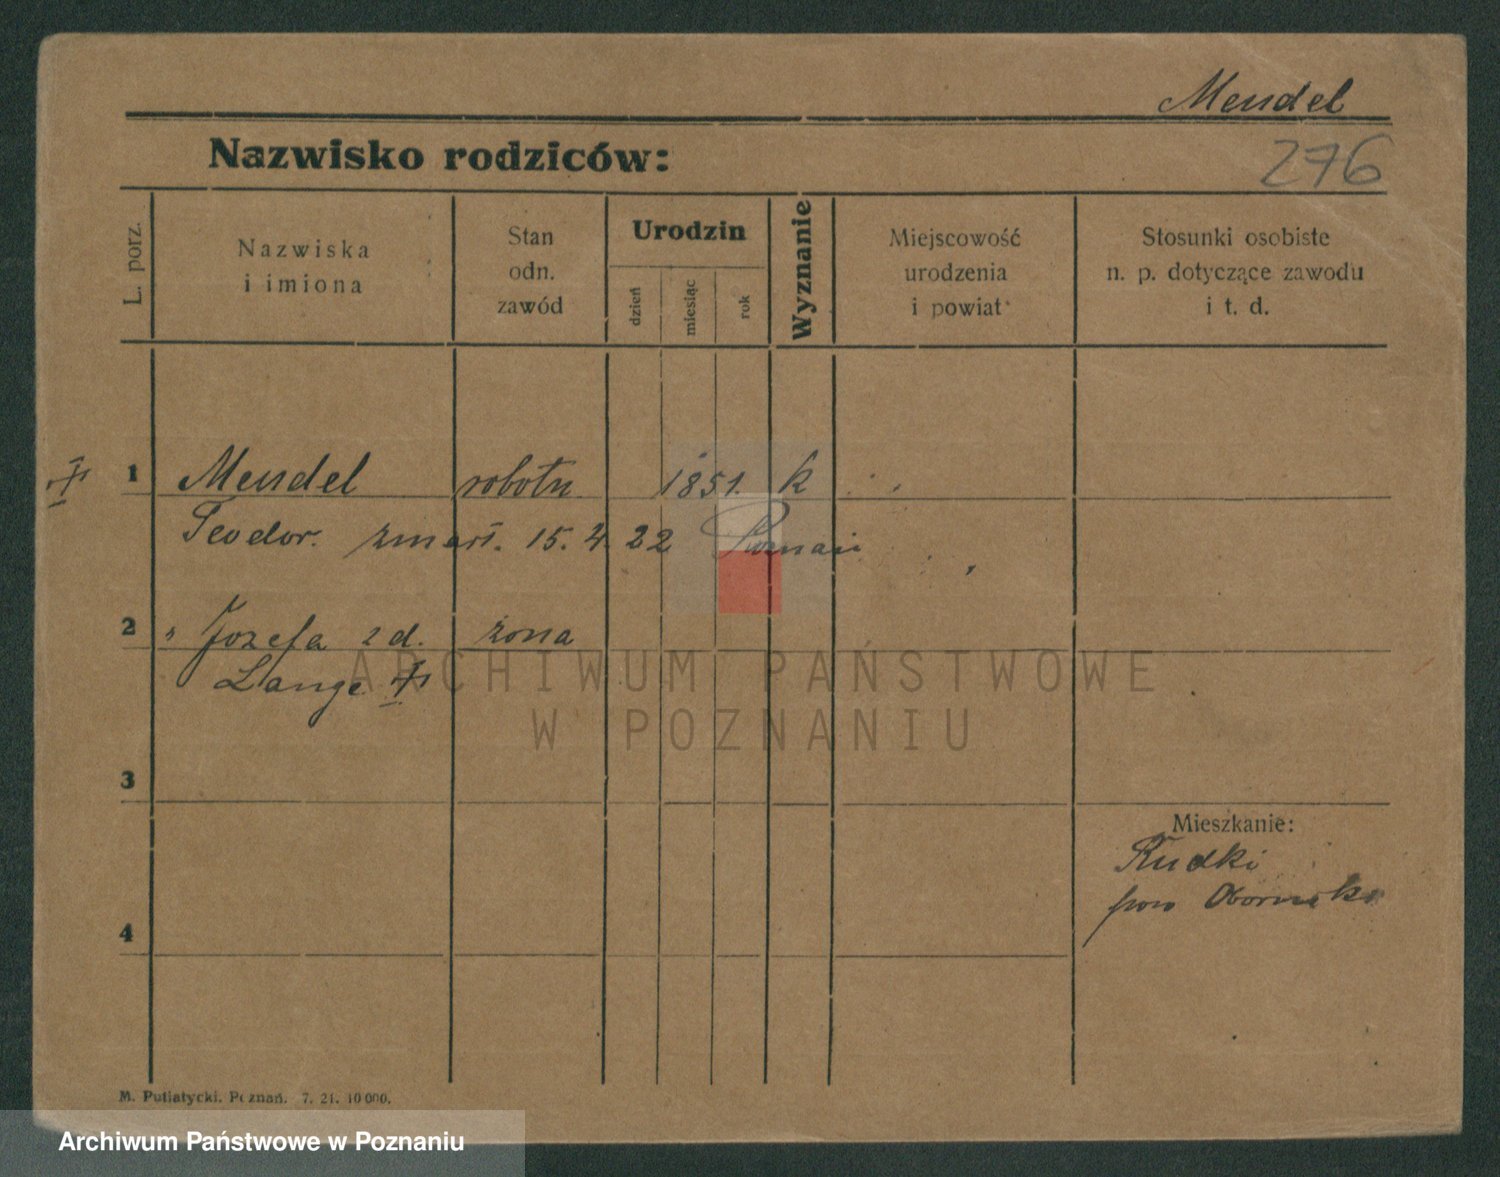 Mendel
Nazwisko rodziców:
276
L. porz.
Nazwiska
i imiona
Stan
odn.
zawód
Urodzin
dzień
miesiąc
rok
Wyznanie
Miejscowość
urodzenia
i powiat
Stosunki osobiste
n. p. dotyczące zawodu
i t. d.
1 Mendel robotn. 1851. k
Teodor. zmarł. 15. 4. 22 Poznań
2 " Jozefa z d. żona
Lange
3
Mieszkanie:
Rudki
pow Obornicki
4
M. Putiatycki. Poznań. 7. 21. 10 000.
ARCHIWUM PAŃSTWOWE
W POZNANIU
Archiwum Państwowe w Poznaniu